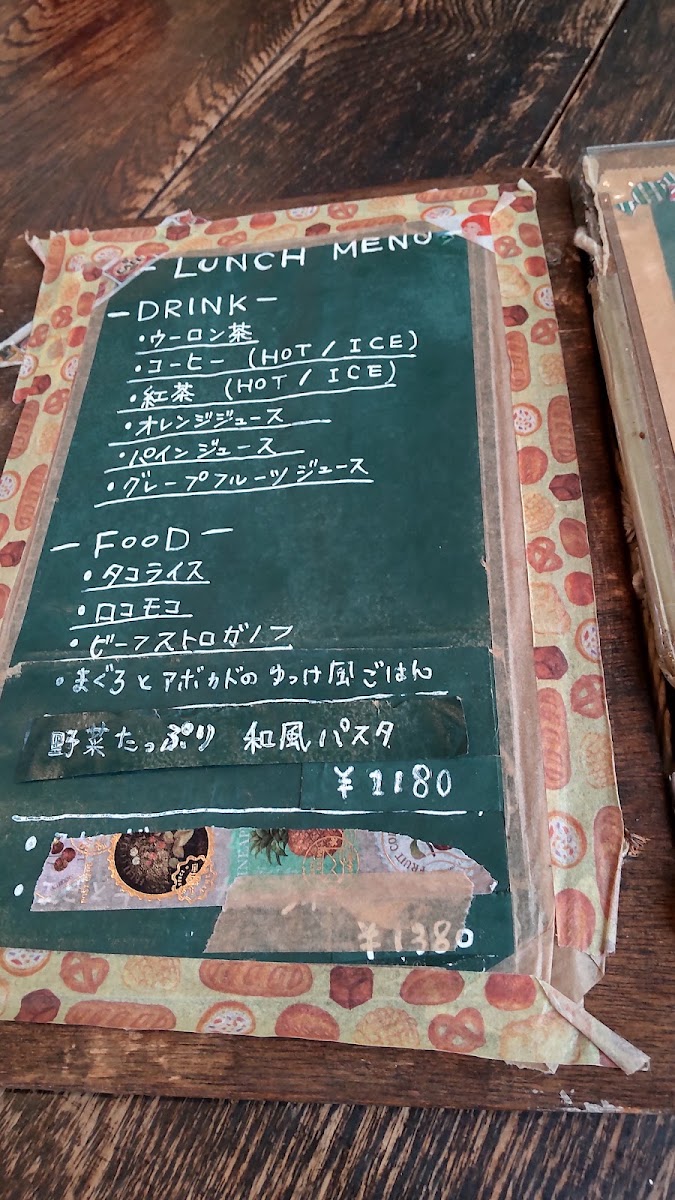 - LUNCH MENU
-DRINK-
・ウーロン茶
・コーヒー (HOT / ICE)
・紅茶 (HOT / ICE)
・オレンジジュース
・パインジュース
・グレープフルーツジュース
-FOOD-
・タコライス
・ロコモコ
・ビーフストロガノフ
・まぐろとアボカドのゆっけ風ごはん
野菜たっぷり 和風パスタ
¥1180
¥1380